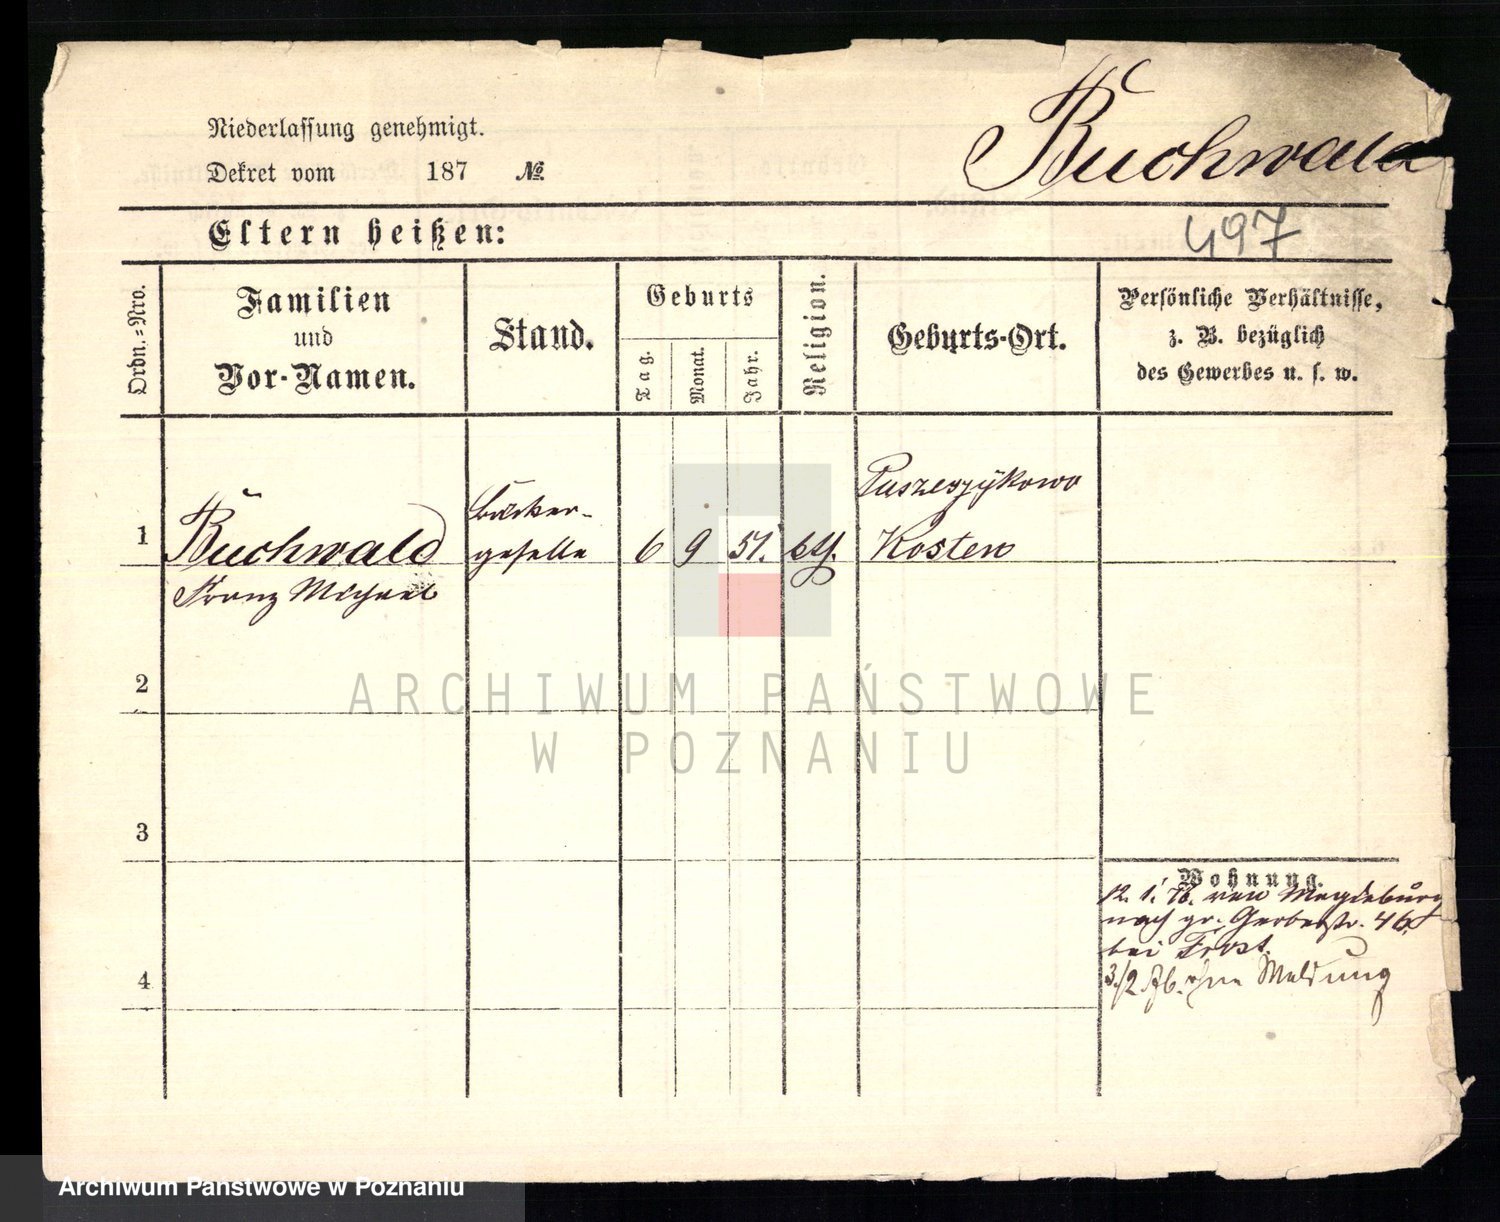 Buchwald
Niederlassung genehmigt.
Dekret vom 187 №
Eltern heißen:
497
Ordn.=Nro.
Familien
und
Vor-Namen.
Stand.
Geburts
Tag.
Monat.
Jahr.
Religion.
Geburts-Ort.
Persönliche Verhältnisse,
z. B. bezüglich
des Gewerbes u. s. w.
1
Buchwald
Franz Michael
Bäcker-
geselle
6 9 51. kth.
Puszczykowo
Kosten
2
3
4
Wohnung.
12. 1. 76. von Magdeburg
nach gr. Gerberstr. 46
bei Frost.
3/2 76. ohne Meldung
ARCHIWUM PAŃSTWOWE
W POZNANIU
Archiwum Państwowe w Poznaniu